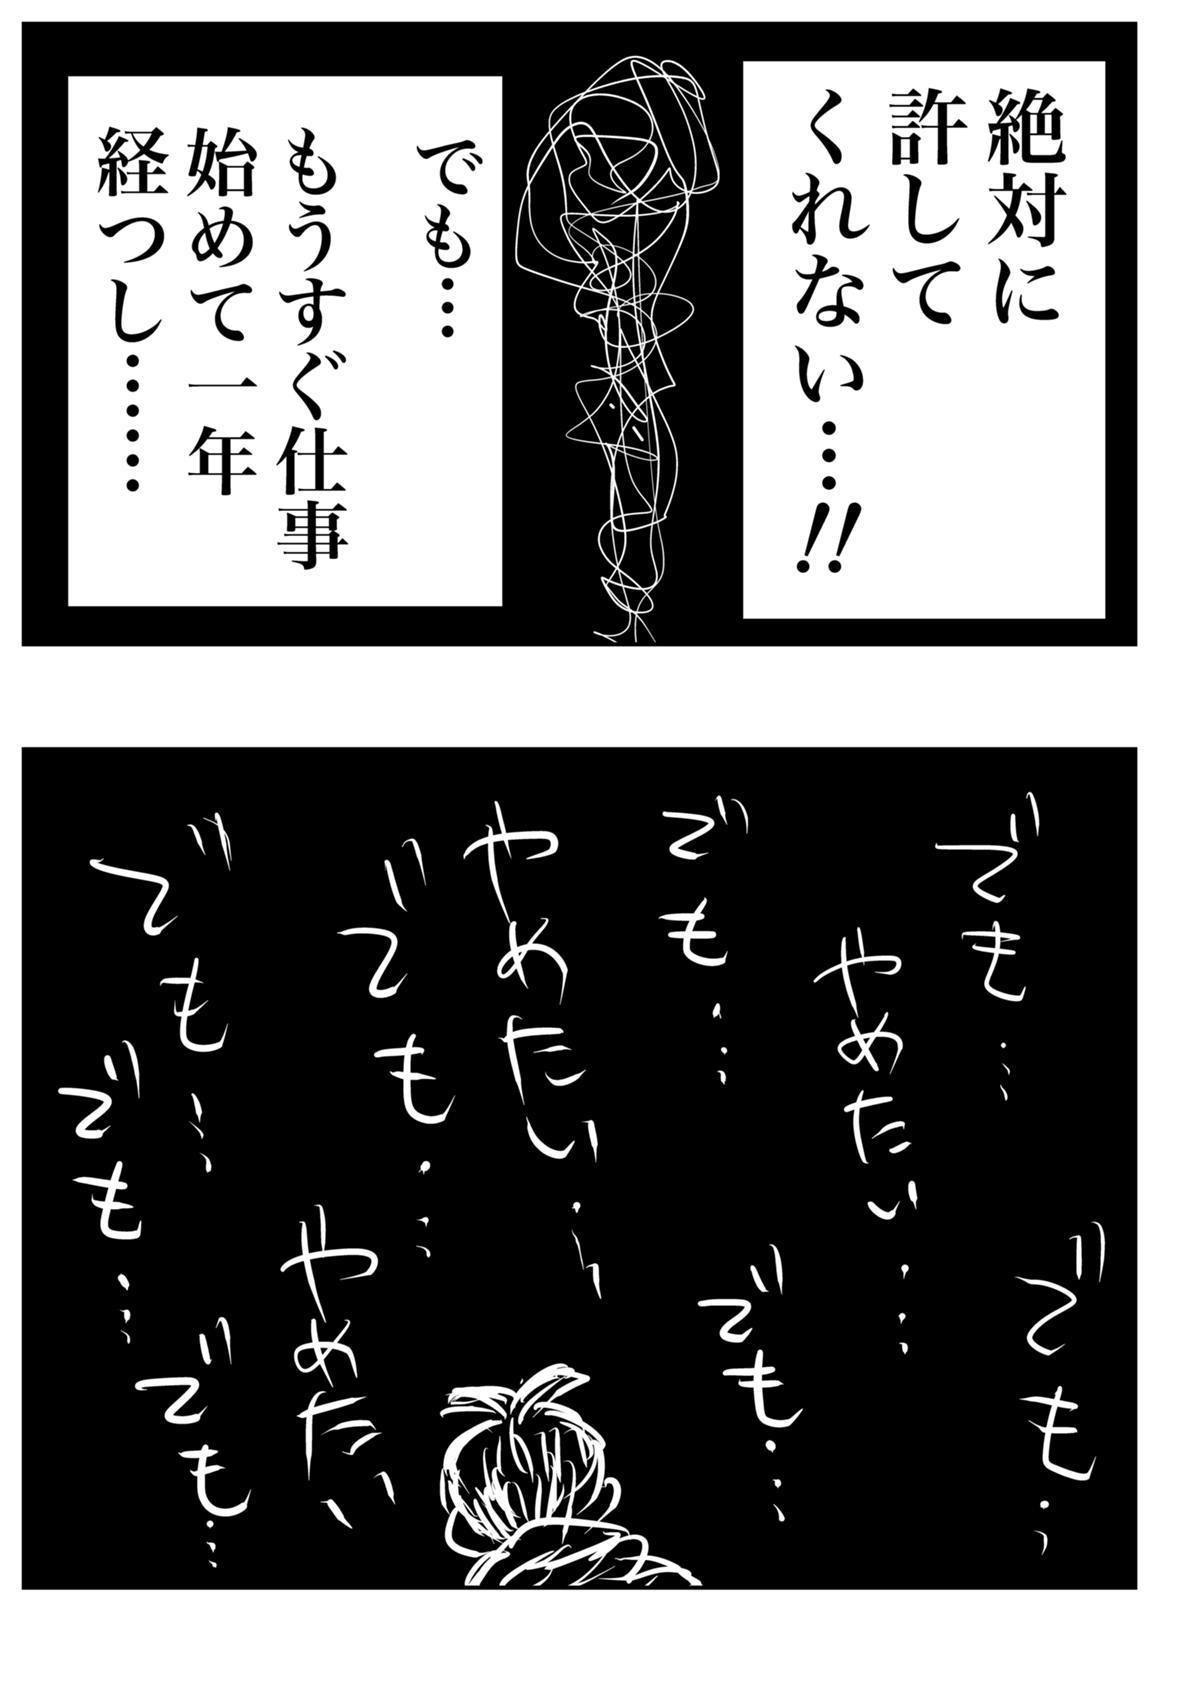 絶対に
許して
くれない…‥!!
でも…
もうすぐ仕事
始めて一年
経つし………
でも…
やめたい…
でも…
やめたい…
でも…
でも…
でも…
でも…
でも…
やめたい
でも…